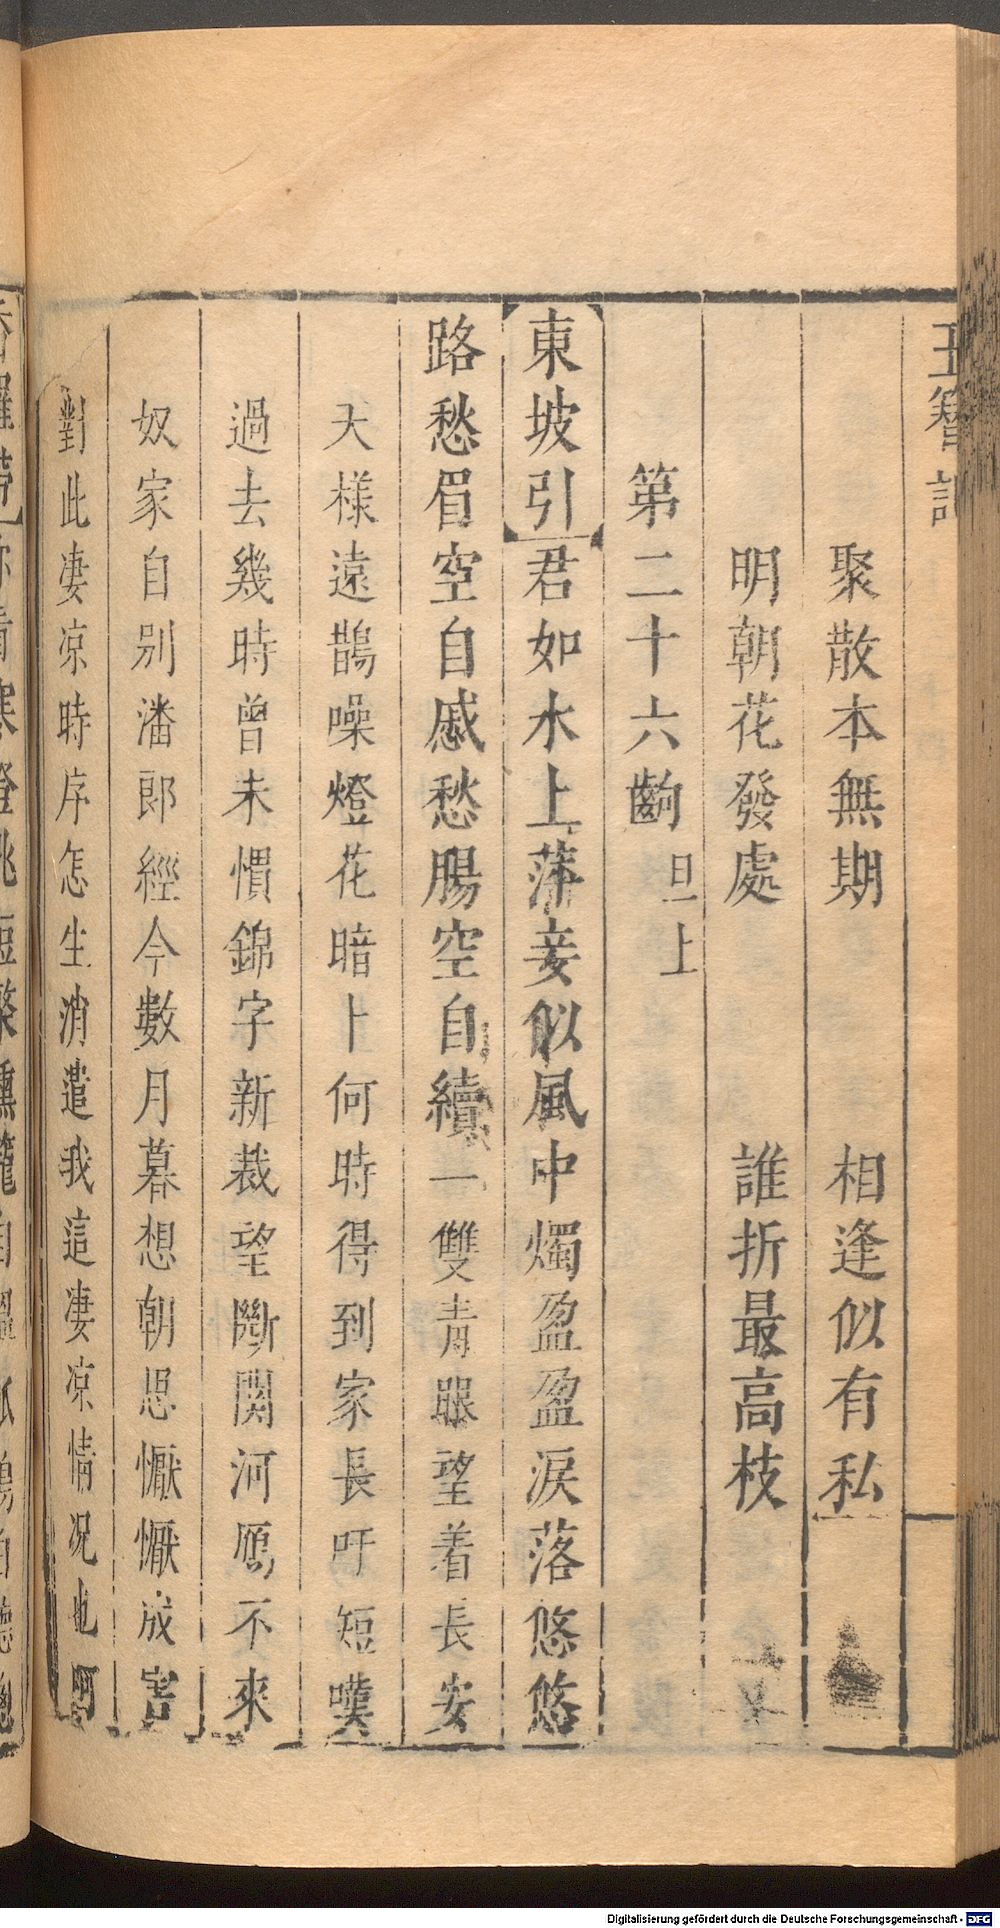 玉簪記
聚散本無期　相逢似有私
明朝花發處　誰折最高枝
第二十六齣 旦上
東坡引 君如水上萍妾似風中燭盈盈淚落悠悠
路愁眉空自戚愁腸空自續一雙青眼望着長安
天樣遠鵲噪燈花暗卜何時得到家長吁短嘆
過去幾時曾未慣錦字新裁望斷関河鴈不來
奴家自別潘郎經今數月暮想朝思懨懨成害
對此凄凉時序怎生消遣我這凄凉情况也呵
Digitalisierung gefördert durch die Deutsche Forschungsgemeinschaft - DFG